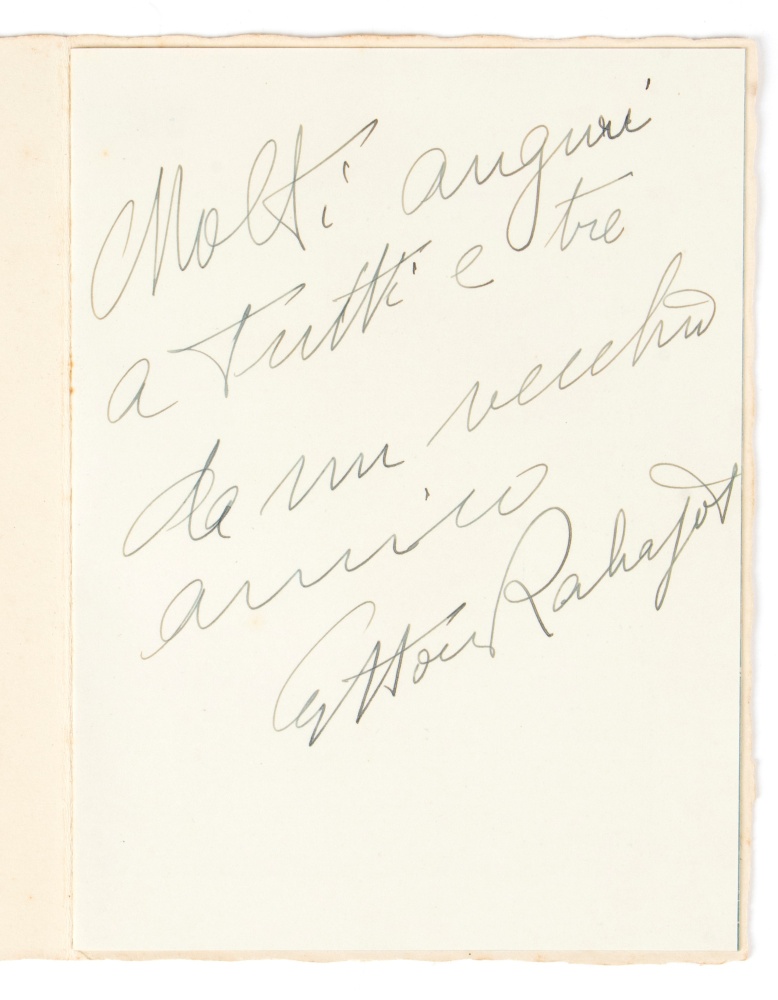 Molti auguri
a tutti e tre
da un vecchio
amico
Ettore